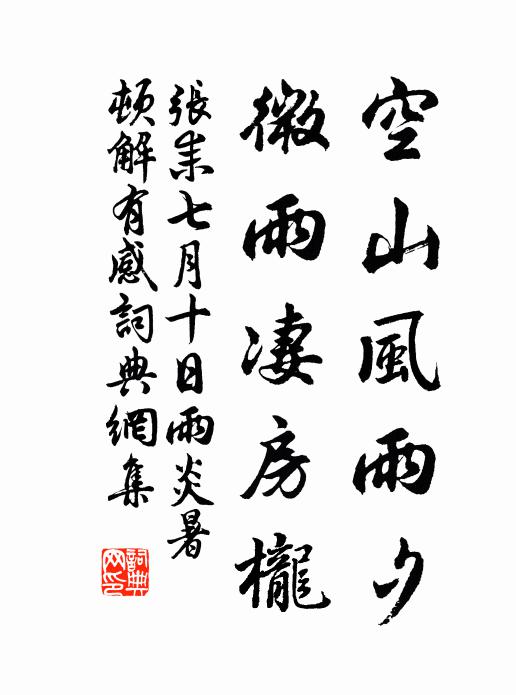 空山風雨夕
微雨凄房櫳
張耒七月十日雨炎暑
頓解有感詞典網集
詞典
网印